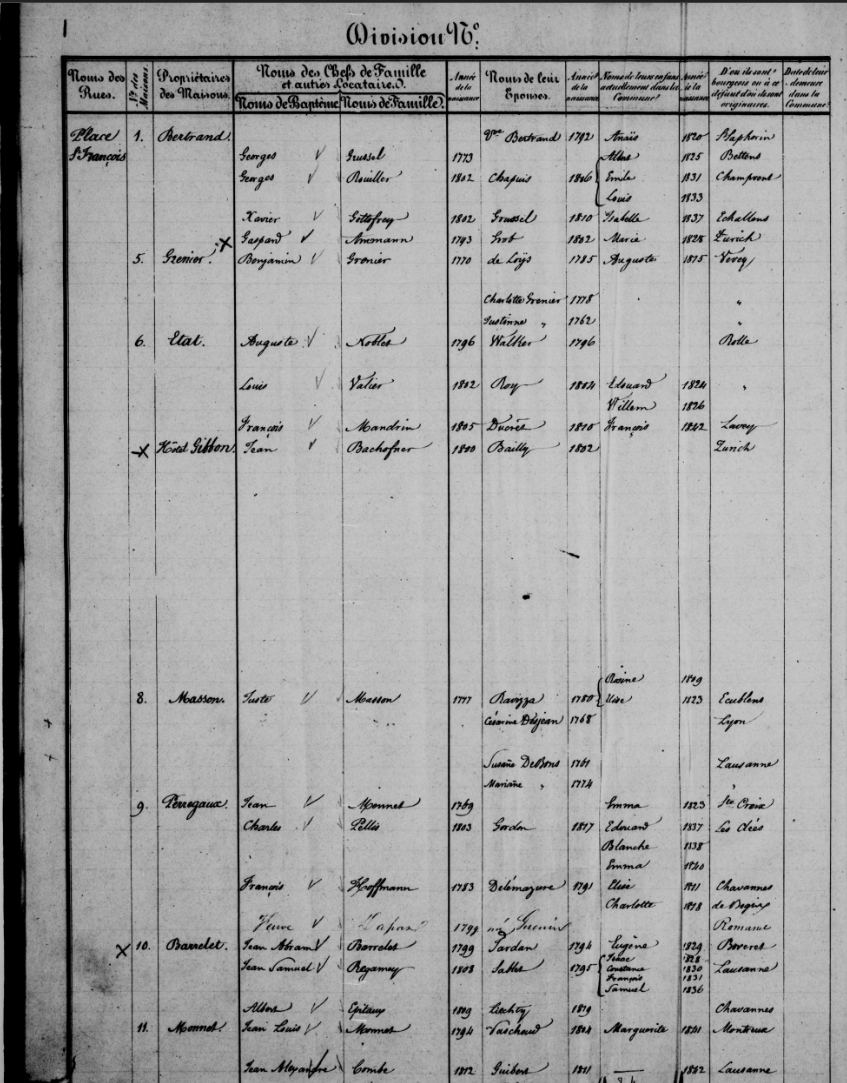 1
Division No.
Noms des Rues. Nos des Maisons. Propriétaires des Maisons. Noms des Chefs de Famille et autres Locataires. Noms de Baptême. Noms de Famille. Année de la naissance Noms de leur Epouses. Année de la naissance Noms de leurs enfans actuellement dans la Commune. Année de la naissance D'où ils sont bourgeois ou à ce défaut d'où ils sont originaires. Date de leur demeure dans la Commune.
Place 1. Bertrand. Vve Bertrand 1792 Anaïs 1820 St Saphorin
St François Georges Grussel 1773 Albert 1825 Bettens
Georges Rouiller 1802 Chapuis 1806 Emile 1831 Champvent
Louis 1833
Xavier Gottofrey 1802 Groussel 1810 Isabelle 1837 Echallens
Gaspard Ammann 1793 Grob 1802 Marie 1828 Zurich
5. Grenier. Benjamin Grenier 1770 de Loÿs 1785 Auguste 1815 Vevey
Charlotte Grenier 1778 "
Justinne " 1762 "
6. Etat. Auguste Noblet 1796 Walther 1796 Rolle
Louis Valier 1802 Roy 1804 Edouard 1824 "
Willem 1826
François Mandrin 1805 Ducret 1810 François 1842 Lavey
Hôtel Gibbon Jean Bachofner 1800 Bailly 1802 Zurich
Rosine 1809
8. Masson. Juste Masson 1777 Ravizza 1780 Elise 1823 Ecublens
Césarine Dejean 1768 Lyon
Susane DeBons 1761 Lausanne
Mariane " 1774 "
9. Perregaux. Jean Monnet 1769 Emma 1823 Ste Croix
Charles Pellis 1803 Gordon 1817 Edouard 1837 Les Clées
Blanche 1838
Emma 1840
François Hoffmann 1783 Delémazure 1791 Elise 1811 Chavannes
Charlotte 1818 de Bogis
Veuve 1799 née Romane
10. Barrelet. Jean Abram Barrelet 1799 Jardan 1794 Eugène 1829 Boveret
Isaac 1828
Jean Samuel Regamey 1808 Sables 1795 Constance 1830 Lausanne
François 1831
Samuel 1836
Albert Epitaux 1809 Liechty 1819 Chavannes
11. Monnet. Jean Louis Monnet 1794 Vaschaud 1804 Marguerite 1841 Montreux
Jean Alexandre Combe 1812 Guibert 1811 — 1842 Lausanne